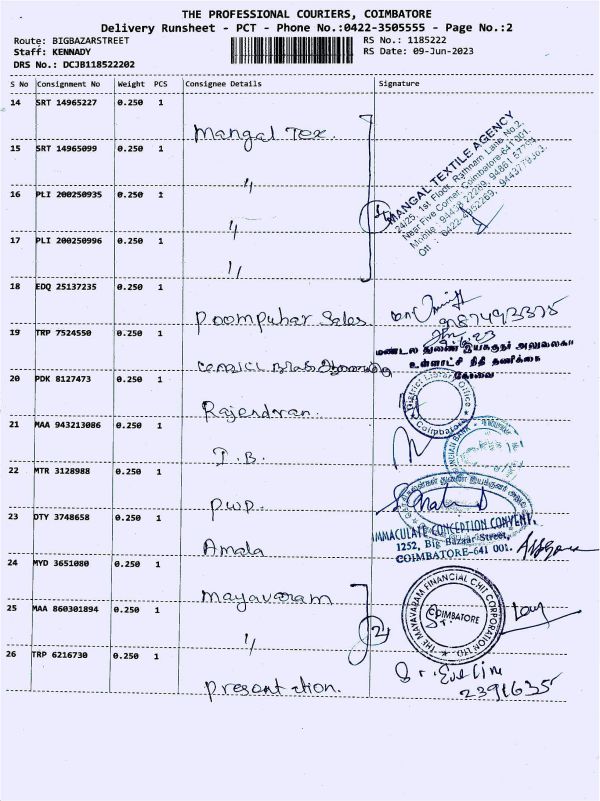 THE PROFESSIONAL COURIERS, COIMBATORE
Delivery Runsheet - PCT - Phone No.:0422-3505555 - Page No.:2
Route: BIGBAZARSTREET
RS No.: 1185222
Staff: KENNADY
RS Date: 09-Jun-2023
DRS No.: DCJB118522202
S No Consignment No Weight PCS Consignee Details Signature
14 SRT 14965227 0.250 1
Mangal Tex.
15 SRT 14965099 0.250 1
"
16 PLI 200250935 0.250 1
"
17 PLI 200250996 0.250 1
"
4
MANGAL TEXTILE AGENCY
24/25, 1st Floor, Rathnam Lane, No.2,
Near Five Corner, Coimbatore-641 001.
Mobile : 94433 22269,
Off : 0422-4952269,
18 EDQ 25137235 0.250 1
Poompuhar Sales
19 TRP 7524550 0.250 1
மண்டல துணை இயக்குநர் அலுவலகம்
உள்ளாட்சி நிதி தணிக்கை
கோவை
20 PDK 8127473 0.250 1
Rajendran
District Library Office
Coimbatore
21 MAA 943213086 0.250 1
I.B.
INDIAN BANK
22 MTR 3128988 0.250 1
PWP.
23 DTY 3748658 0.250 1
Amala
IMMACULATE CONCEPTION CONVENT,
1252, Big Bazaar Street,
COIMBATORE-641 001.
24 MYD 3651080 0.250 1
Mayavaram
25 MAA 860301894 0.250 1
"
2
THE MAYAVARAM FINANCIAL CHIT CORPORATION LTD
COIMBATORE
26 TRP 6216730 0.250 1
Presentation.
Sr. Eveline
2391635